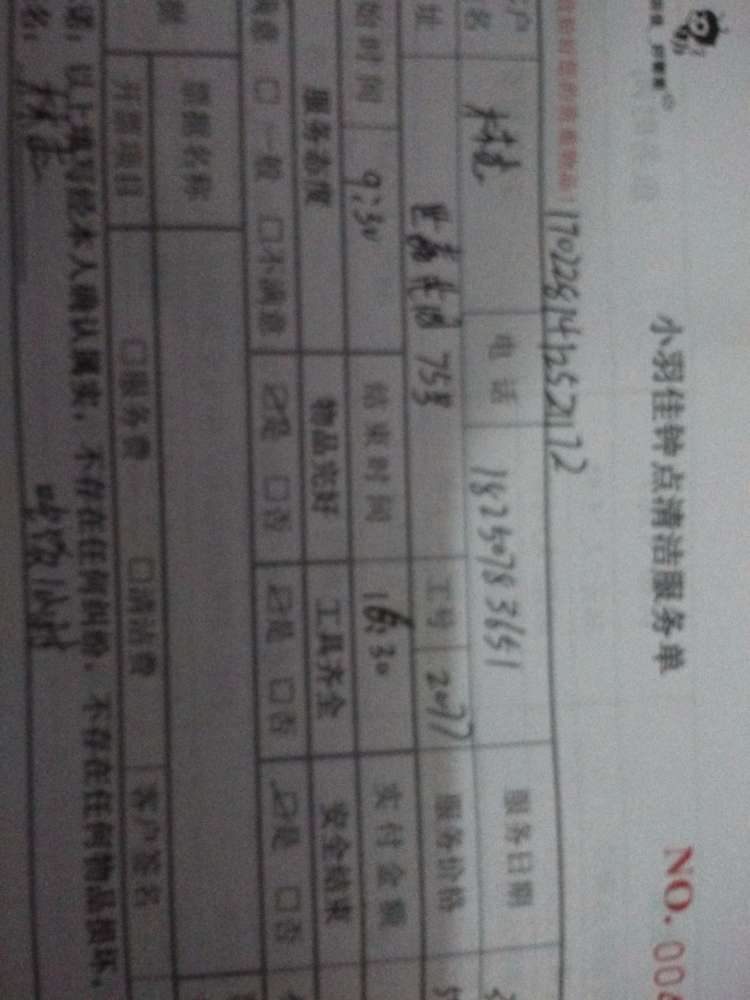 小羽佳钟点清洁服务单
NO. 004
17022814125272
户名 电话 18250783651 服务日期
址 75号 工号 2077 服务价格
始时间 9:30 结束时间 16:30 支付金额
服务态度 物品完好 工具齐全 安全结束
满意 □一般 □不满意 ☑是 □否 ☑是 □否 ☑是 □否
票据名称
开票项目 □服务费 □清洁费 客户签名
诺:以上填写经本人确认属实,不存在任何纠纷,不存在任何物品损坏,
名: 吃饭1小时